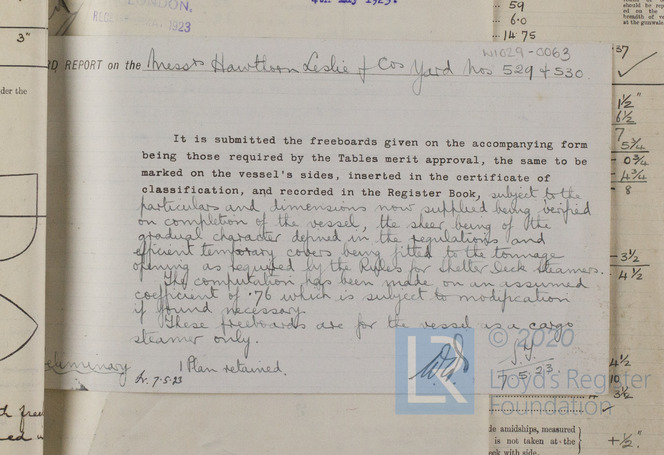 LONDON,
1923
59
6.0
14 75
W1029-0063
3"
RD REPORT on the Messrs Hawthorn Leslie & Cos Yard Nos 529 & 530.
It is submitted the freeboards given on the accompanying form
being those required by the Tables merit approval, the same to be
marked on the vessel's sides, inserted in the certificate of
classification, and recorded in the Register Book, subject to the
particulars and dimensions now supplied being verified
on completion of the vessel, the sheer being of the
gradual character defined in the regulations and
efficient temporary covers being fitted to the tonnage
opening as required by the Rules for Shelter Deck Steamers.
The computation has been made on an assumed
coefficient of .76 which is subject to modification
if found necessary.
These freeboards are for the vessel as a cargo
steamer only.
1 Plan retained.
7-5-23
7.5.23.
der the
1½"
6½
7
5¾
0¾
4¾
8
3½
4½
4½
10
3½
+½"
de amidships, measured
is not taken at the
eck with side.
© 2020
LR
Lloyd's Register
Foundation